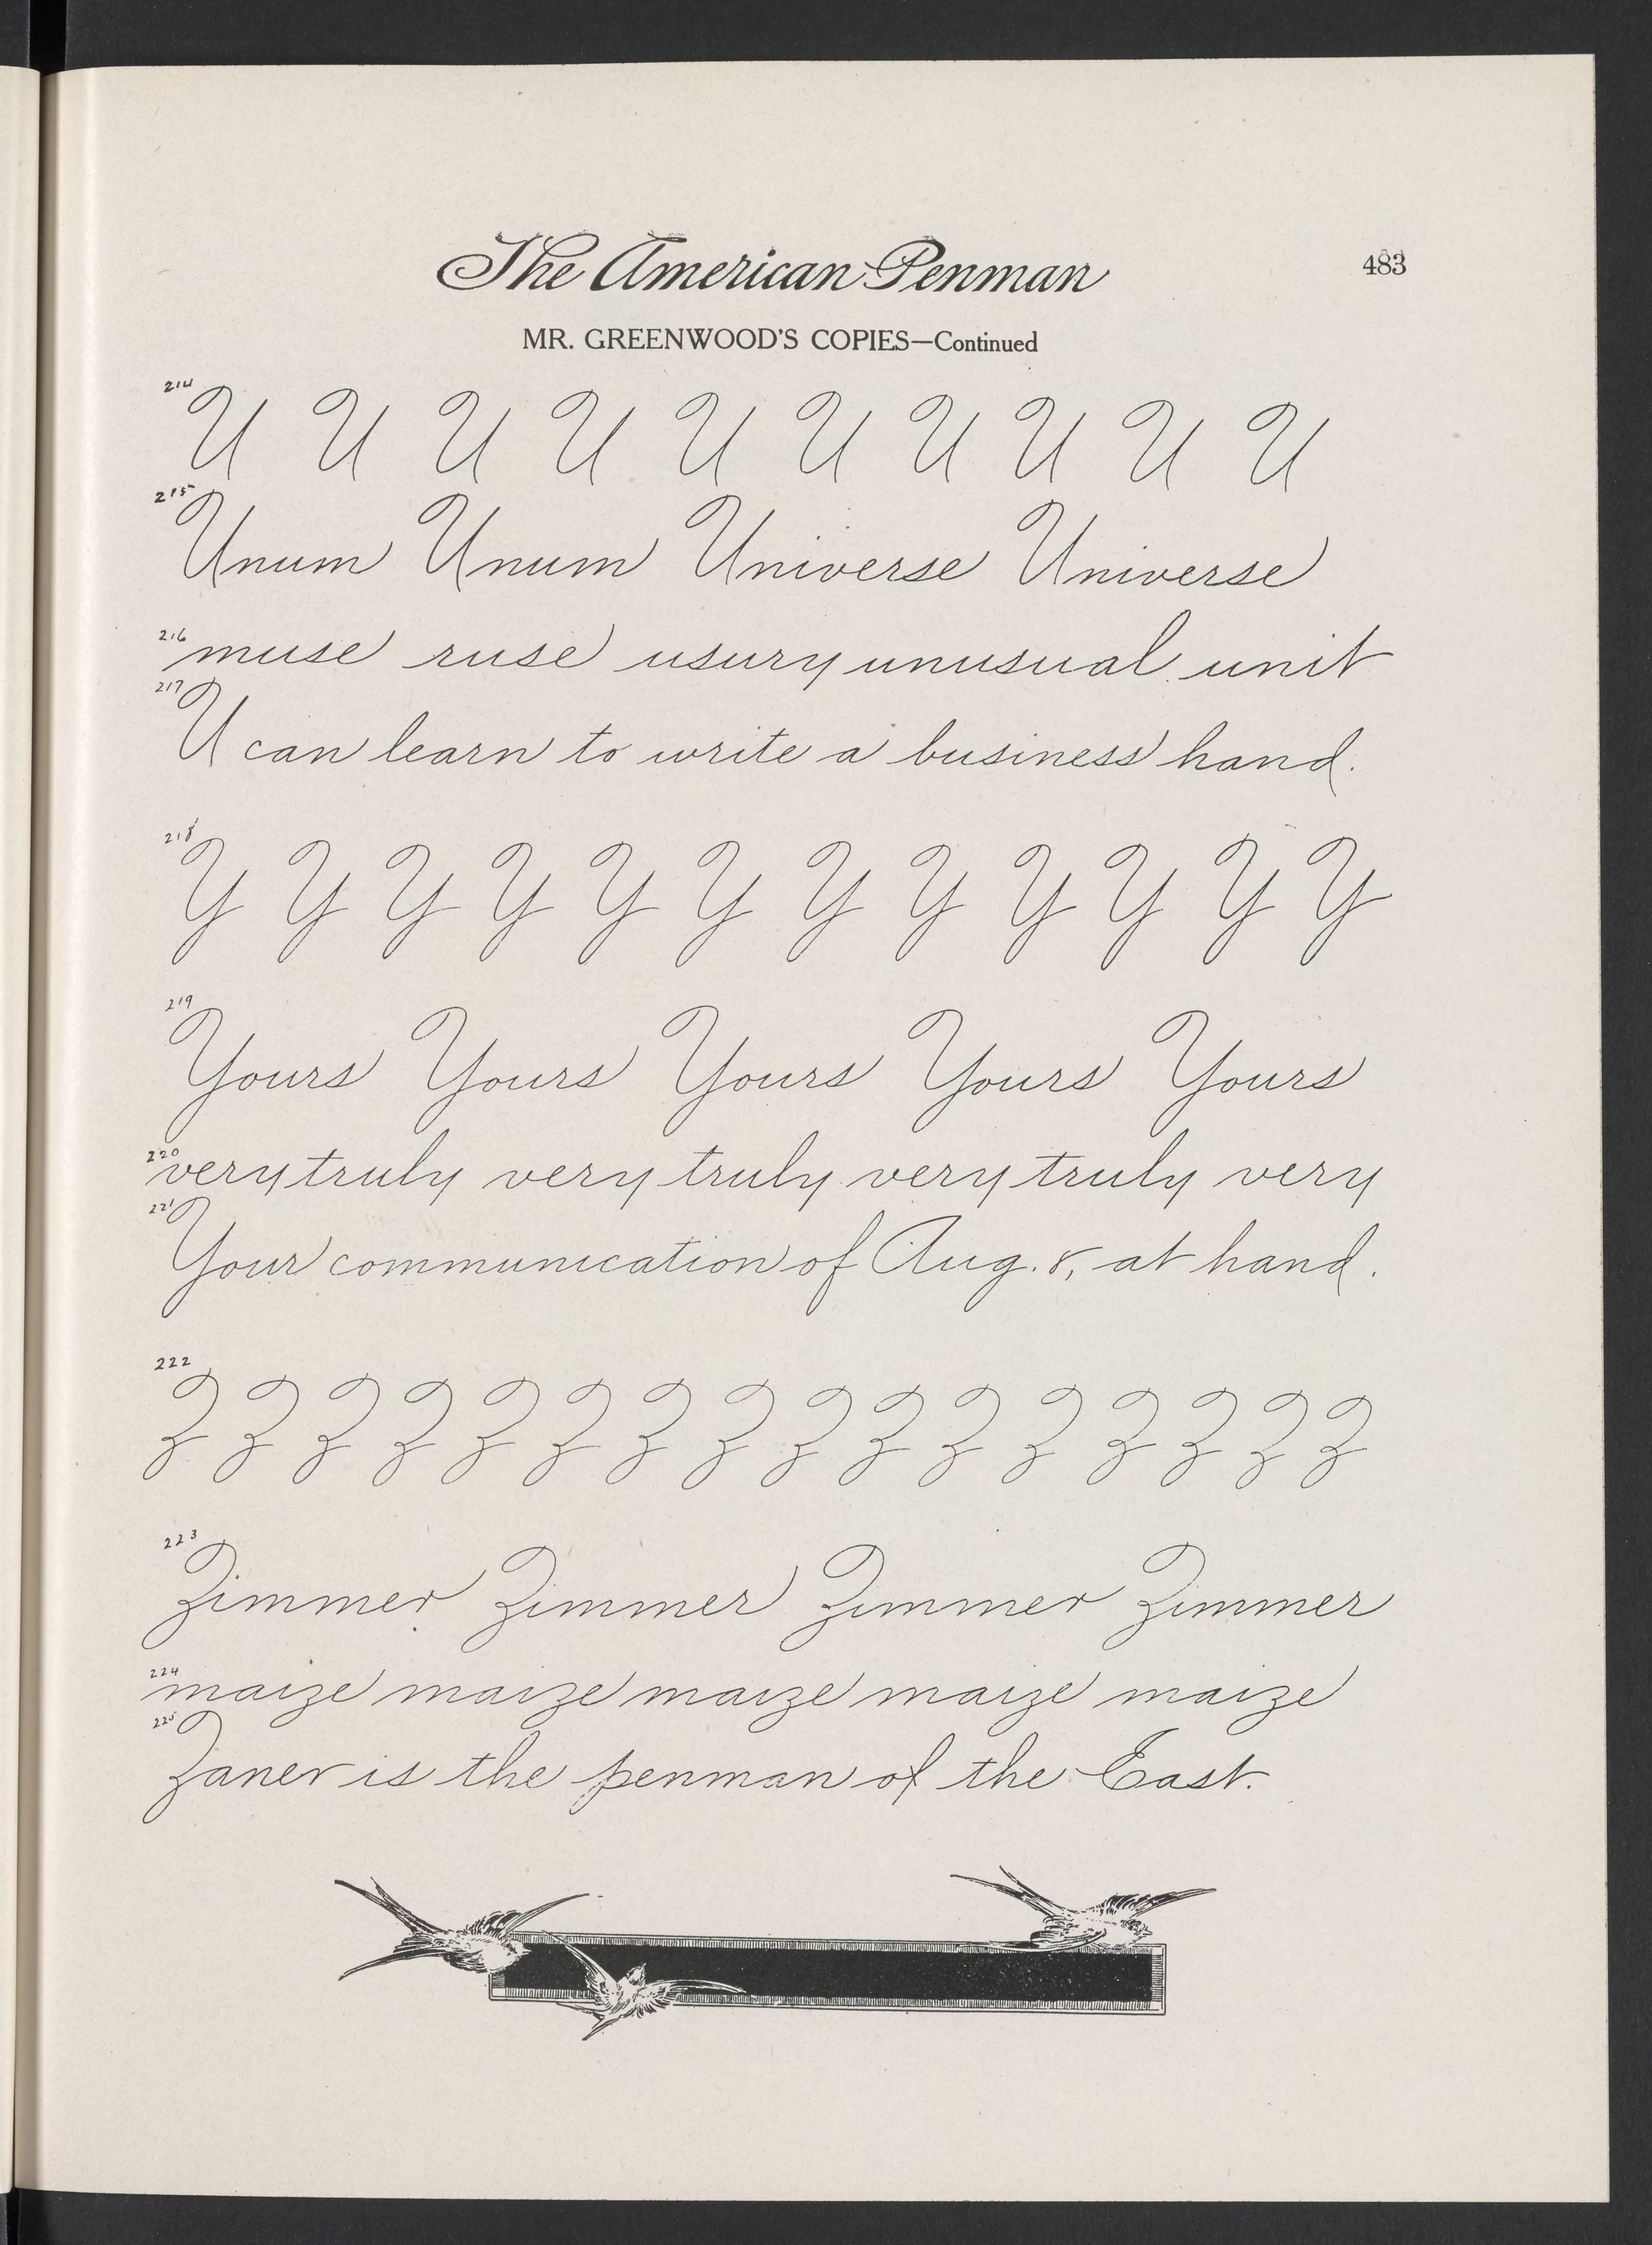 The American Penman 483
MR. GREENWOOD'S COPIES—Continued
214 U U U U U U U U U U
215 Unum Unum Universe Universe
216 muse ruse usury unusual unit
217 U can learn to write a business hand.
218 Y Y Y Y Y Y Y Y Y Y Y Y
219 Yours Yours Yours Yours Yours
220 very truly very truly very truly very
221 Your communication of Aug. 8, at hand.
222 Z Z Z Z Z Z Z Z Z Z Z Z Z Z Z Z
223 Zimmer Zimmer Zimmer Zimmer
224 maize maize maize maize maize
225 Zaner is the penman of the East.